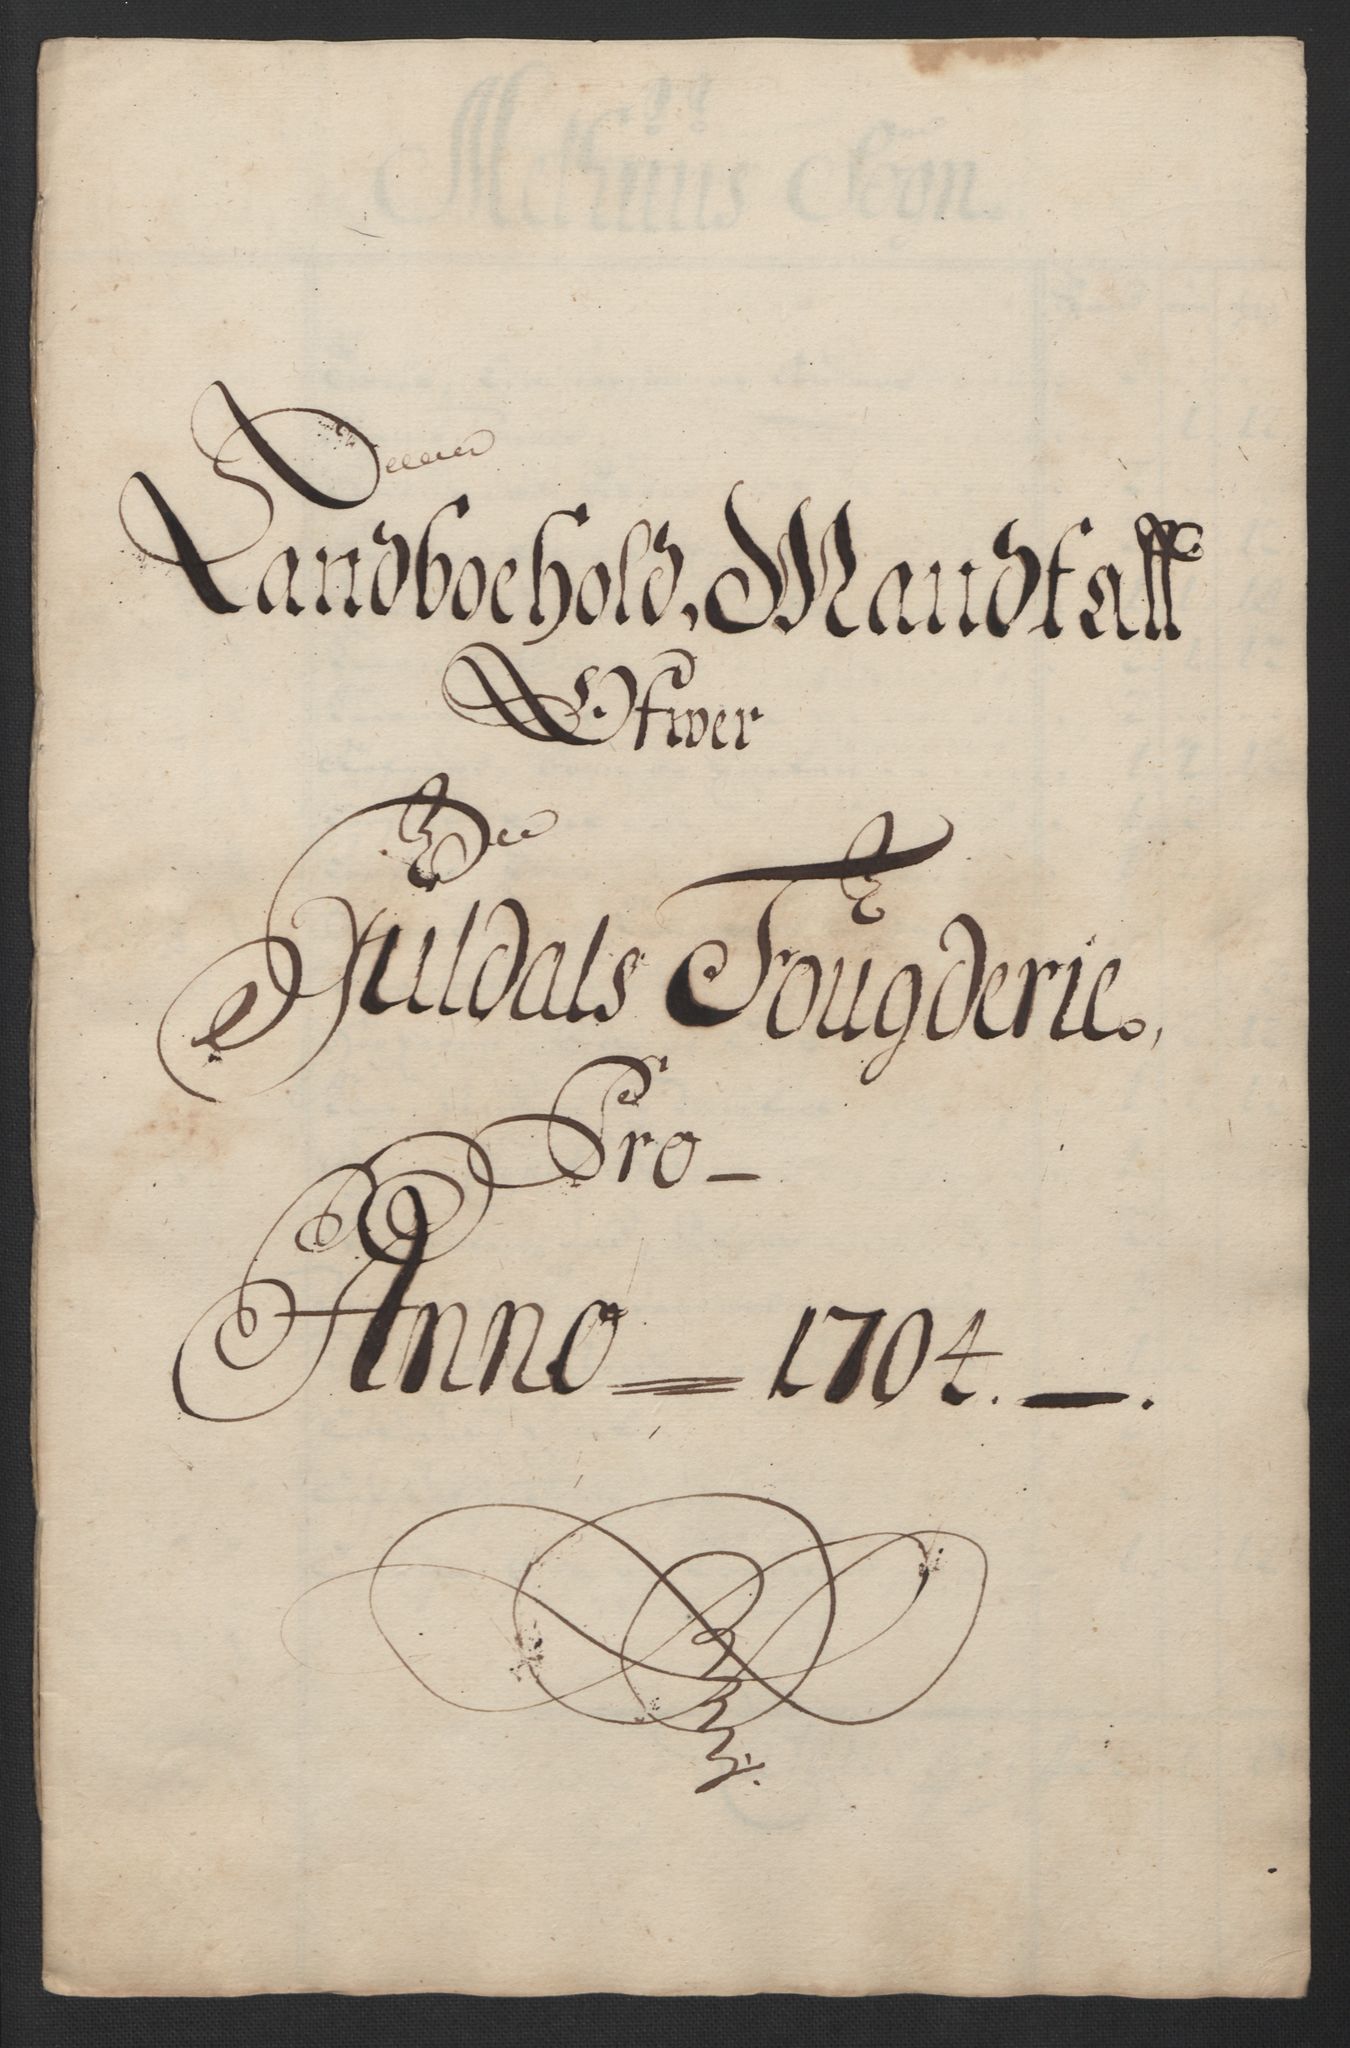 Landboehold, Mandtall
Ofwer
Juldals Fougderie,
Pro
Anno 1704.